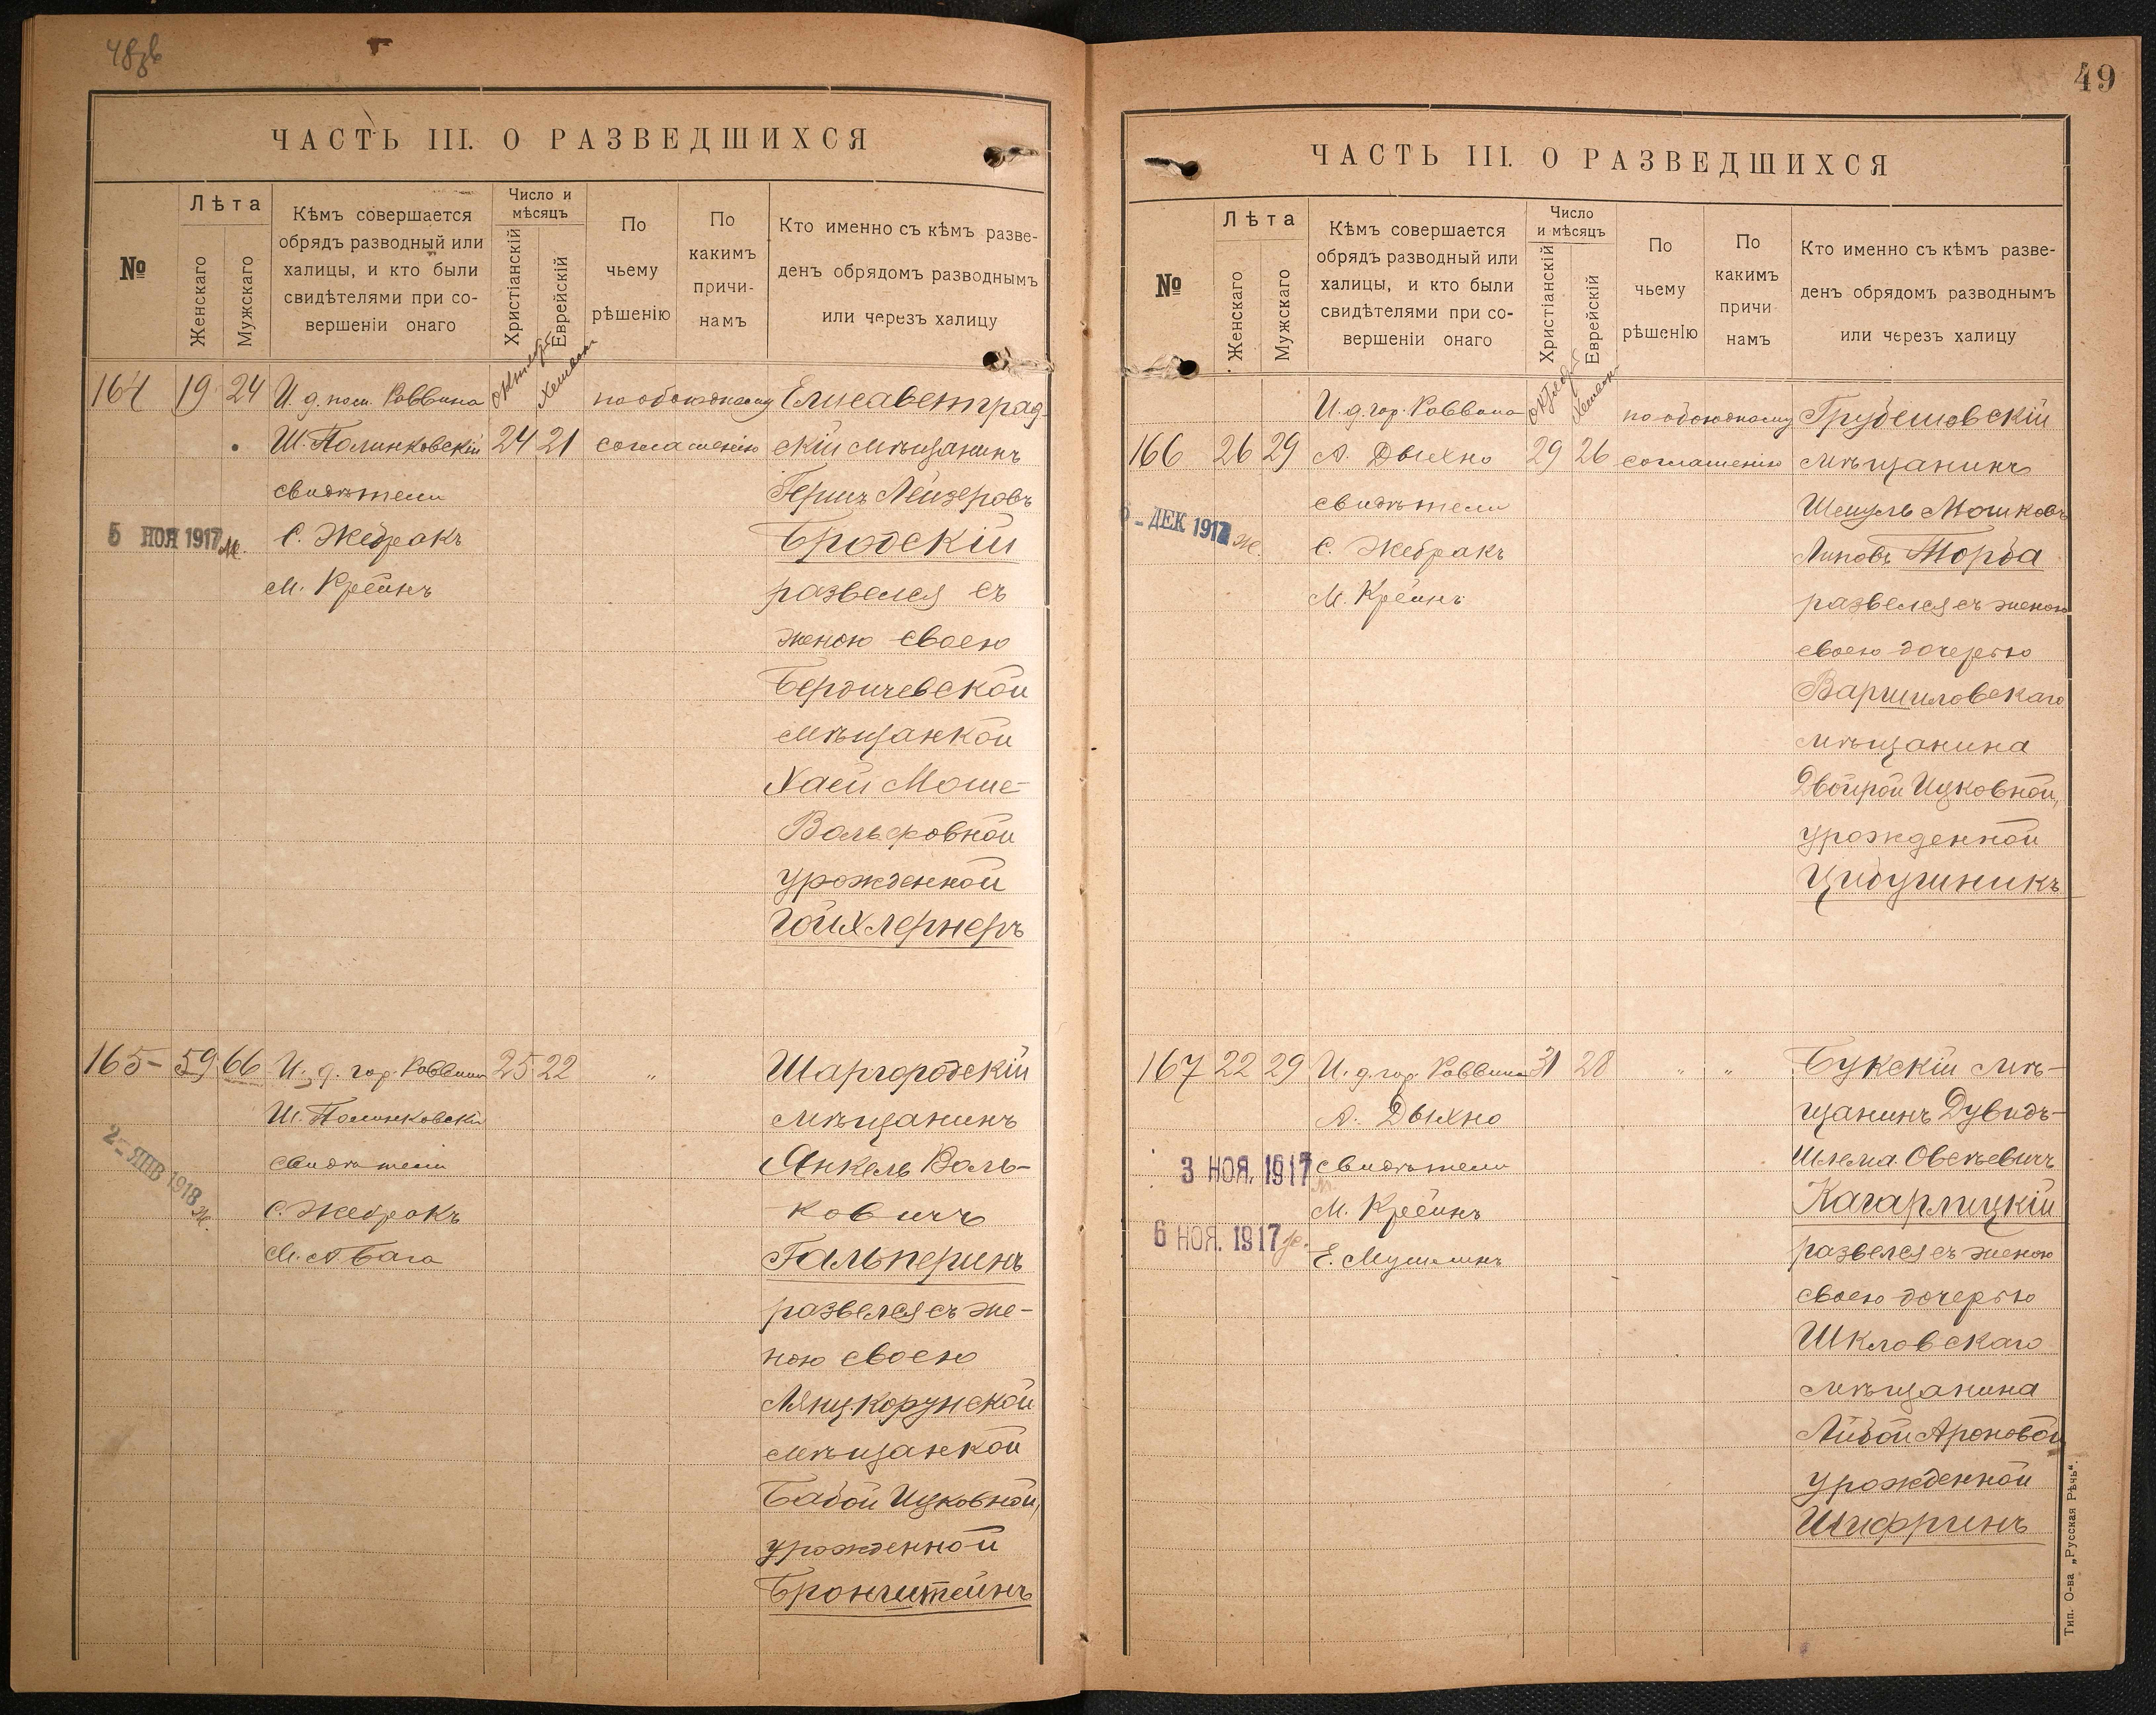 48об
ЧАСТЬ III. О РАЗВЕДШИХСЯ
№
Лѣта
Женскаго
Мужскаго
Кѣмъ совершается
обрядъ разводный или
халицы, и кто были
свидѣтелями при со-
вершеніи онаго
Число и
мѣсяцъ
Христіанскій
Еврейскій
По
чьему
рѣшенію
По
какимъ
причи-
намъ
Кто именно съ кѣмъ разве-
денъ обрядомъ разводнымъ
или черезъ халицу
164 19 24 И. д. пом. Раввина
Октября
Хешвана
по обоюдному Елисаветград-
Ш. Полинковскій 24 21 согласенію скій мѣщанинъ
свидѣтели Гершъ Лейзеровъ
5 НОЯ 1917 М. С. Жебракъ Бродскій
М. Крейнъ развелся съ
женою своею
Бердичевской
мѣщанкой
Хаей Моше-
Вольфовной
урожденной
Гойхлернеръ
165- 59 66 И. д. гор. Раввина 25 22 „ Шаргородскій
Ш. Полинковскій мѣщанинъ
2- ЯНВ 1918 Ж. свидѣтели Янкель Воль-
С. Жебракъ ковичъ
М. А. Бага Гальперинъ
развелся съ же-
ною своею
Лянцкорунской
мѣщанкой
Бабой Ицковной,
урожденной
Бронштейнъ
49
ЧАСТЬ III. О РАЗВЕДШИХСЯ
№
Лѣта
Женскаго
Мужскаго
Кѣмъ совершается
обрядъ разводный или
халицы, и кто были
свидѣтелями при со-
вершеніи онаго
Число
и мѣсяцъ
Христіанскій
Еврейскій
По
чьему
рѣшенію
По
какимъ
причи-
намъ
Кто именно съ кѣмъ разве-
денъ обрядомъ разводнымъ
или черезъ халицу
И. д. гор. Раввина
Октября
Хешван-
по обоюдному Грубешовскій
166 26 29 А. Дыхно 29 26 соглашенію мѣщанинъ
свидѣтели Шмуль Мошковъ
ДЕК 1917 Ж. С. Жебракъ Липовъ Торба
М. Крейнъ развелся съ женою
своею дочерью
Варшиловскаго
мѣщанина
Двойрой Ицковной,
урожденной
Цибушникъ
167 22 29 И. д. гор. Раввина 31 28 „ „ Букскій мѣ-
А. Дыхно щанинъ Дувидъ-
3 НОЯ. 1917 свидѣтели Шлема Овсѣевичъ
М. Крейнъ Кагарлицкій
6 НОЯ. 1917 Ж. Е. Мушлинъ развелся съ женою
своею дочерью
Шкловскаго
мѣщанина
Либой Ароновой
урожденной
Шифринъ
Тип. О-ва „Русская Рѣчь“.